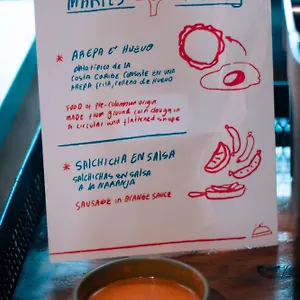 MARTES
* AREPA E' HUEVO
plato típico de la
COSTA CARIBE CONSISTE EN UNA
AREPA FRITA, RELLENO DE HUEVO
FOOD of PRE-Colombian origin
MADE from ground corn dough in
a circular and flattened shape
* SALCHICHA EN SALSA
SALCHICHAS EN SALSA
A LA NARANJA
SAUSAGE in ORANGE SAUCE